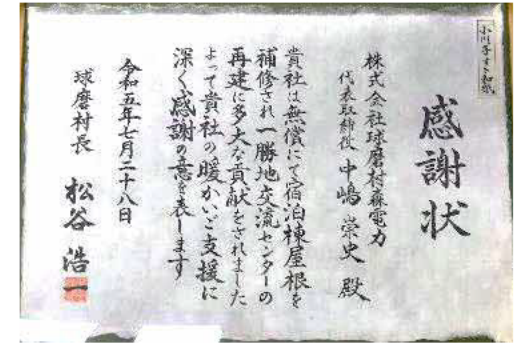 感謝状
株式会社球磨村森電力
代表取締役 中嶋崇史殿
貴社は無償にて宿泊棟屋根を
補修され一勝地交流センターの
再建に多大な貢献をされました
よって貴社の暖かいご支援に
深く感謝の意を表します
令和五年七月二十八日
球磨村長 松谷浩一